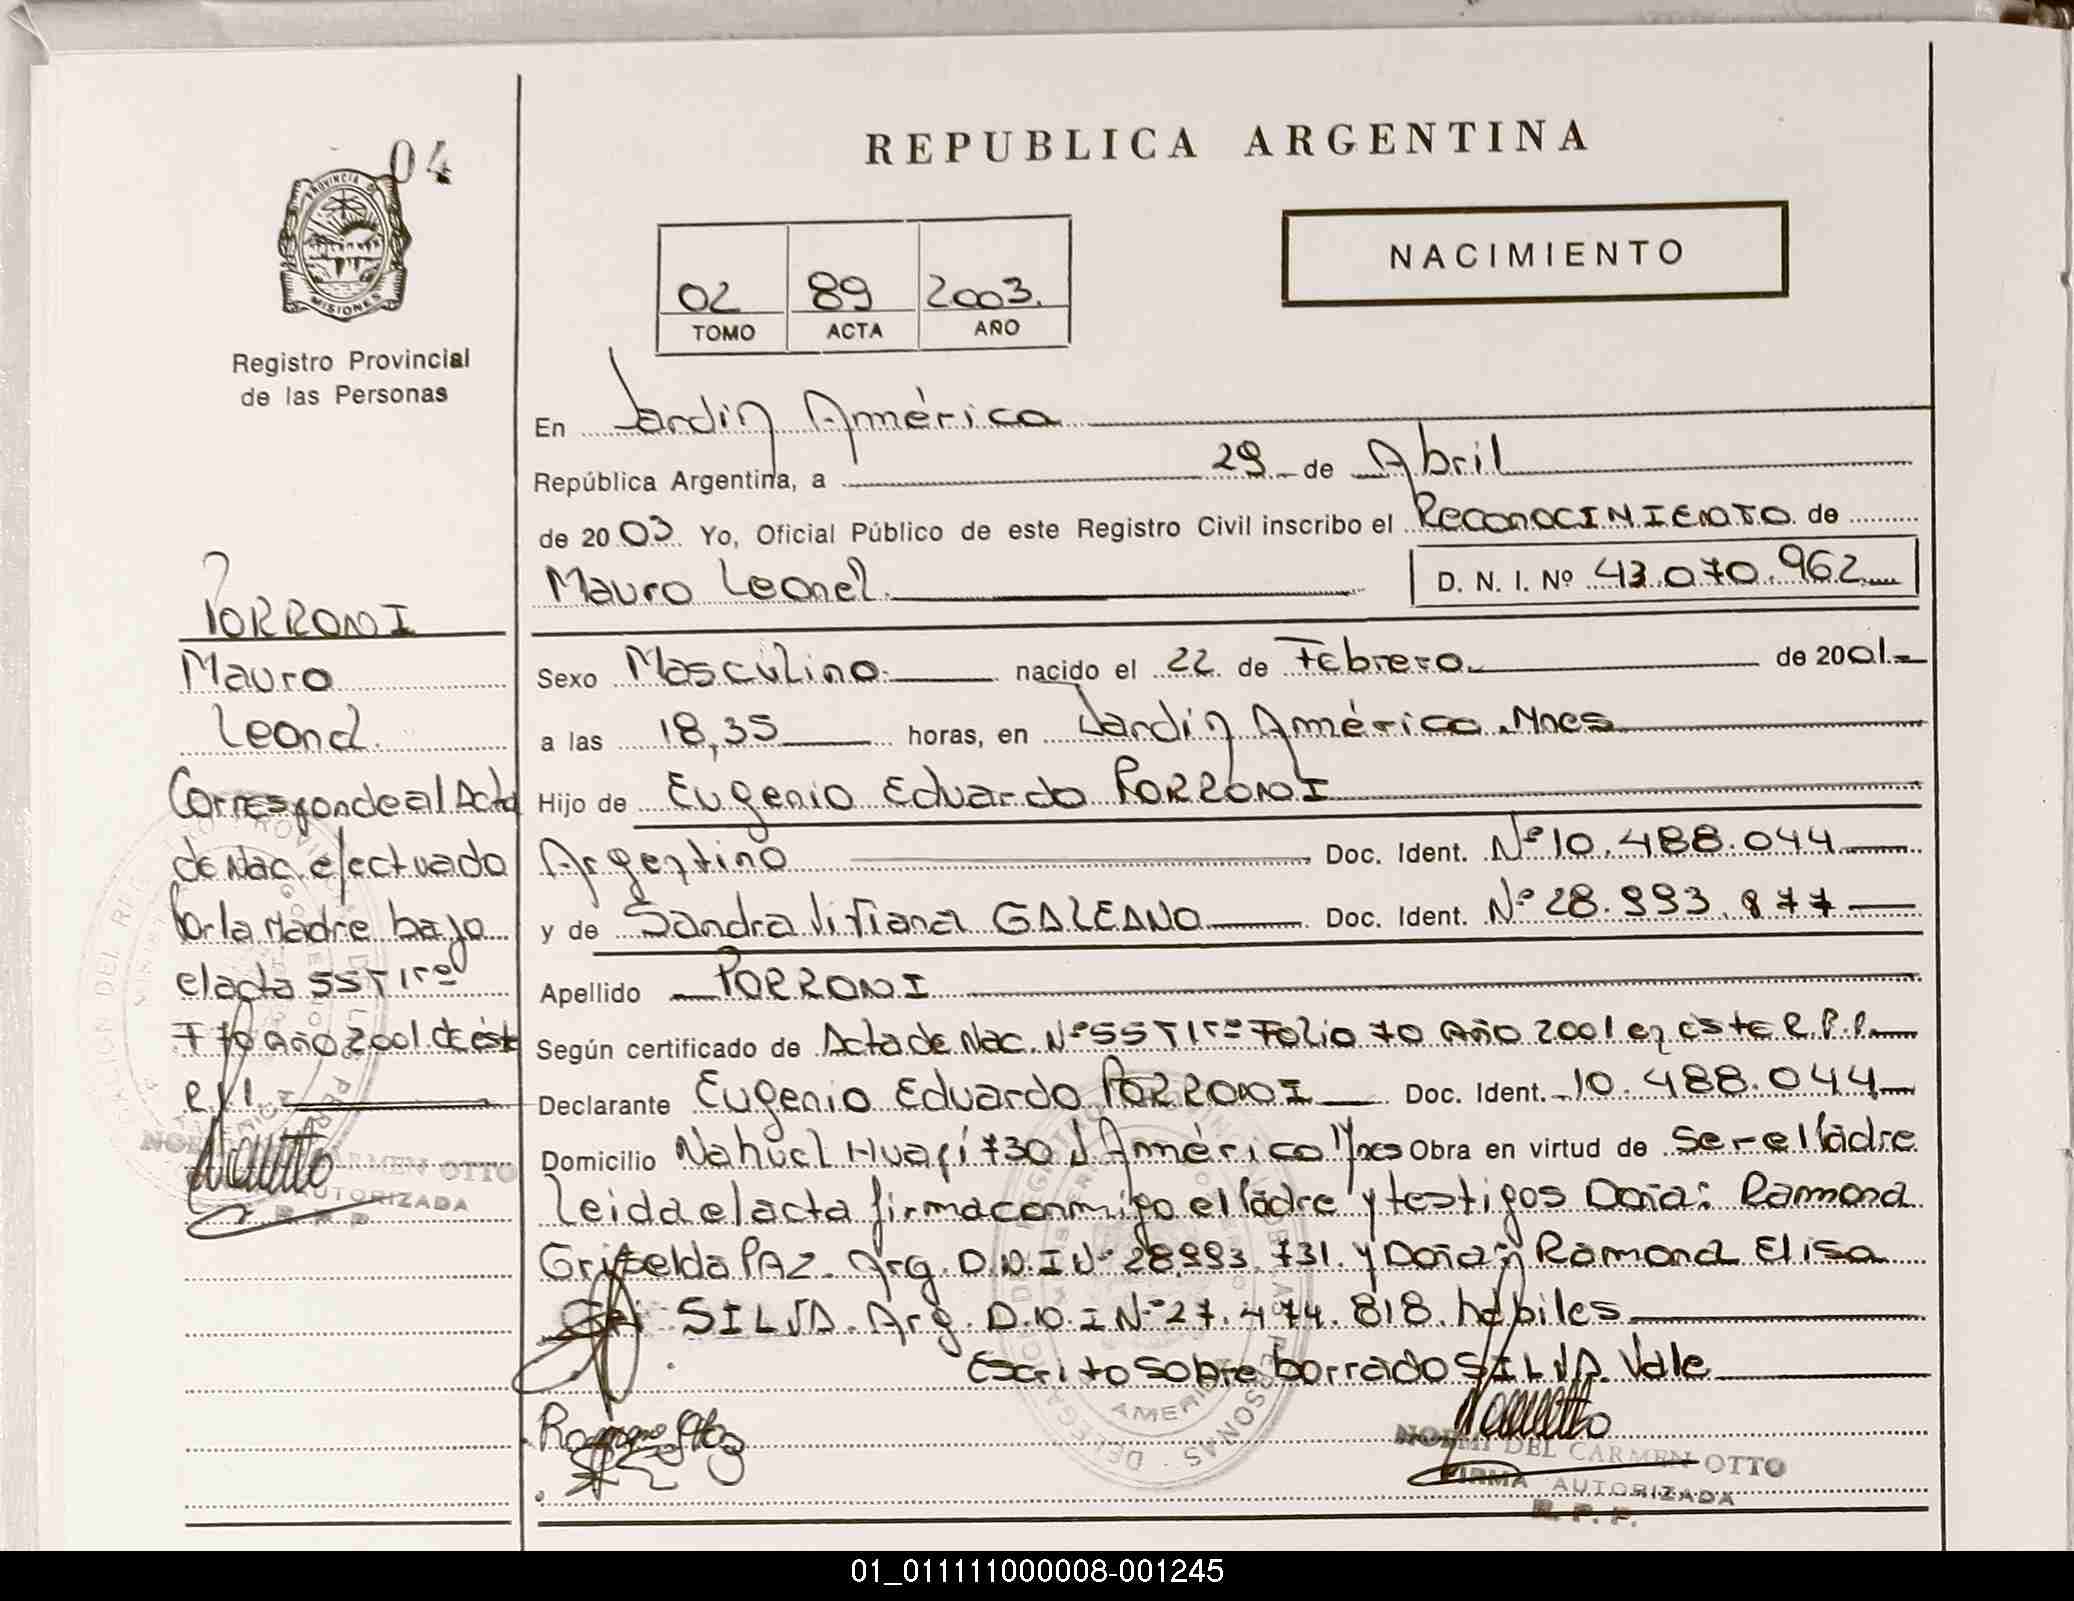 04
PROVINCIA D
MISIONES
Registro Provincial
de las Personas
REPUBLICA ARGENTINA
NACIMIENTO
02 89 2003.
TOMO ACTA AÑO
En Jardín América
República Argentina, a 29 de Abril
de 2003. Yo, Oficial Público de este Registro Civil inscribo el Reconocimiento de
Mauro Leonel. D. N. I. Nº 43.070.962
Sexo Masculino. nacido el 22 de Febrero. de 2001.-
a las 18,35 horas, en Jardín América. Mnes
Hijo de Eugenio Eduardo PORRONI
Argentino Doc. Ident. Nº 10.488.044
y de Sandra Viviana GALEANO Doc. Ident. Nº 28.993.877
Apellido PORRONI
Según certificado de Acta de Nac. Nº 55 T 1ro Folio 70 Año 2001 en este R.P.P.
Declarante Eugenio Eduardo PORRONI Doc. Ident. 10.488.044
Domicilio Nahuel Huapí 730 J América Mnes Obra en virtud de Ser el Padre
Leida el acta firma conmigo el Padre y testigos Doña: Ramona
Griselda PAZ. Arg. D.N.I Nº 28.993.731. y Doña: Ramona Elisa
SILVA. Arg. D.N.I Nº 27.474.818. hábiles
Escrito sobre borrado SILVA. Vale
NOEMI DEL CARMEN OTTO
FIRMA AUTORIZADA
R. P. P.
PORRONI
Mauro
Leonel.
Corresponde al Acta
de Nac. efectuado
Por la Madre bajo
el acta 55 T 1ro
F 70 Año 2001 de éste
CARMEN OTTO
AUTORIZADA
R. P. P.
01_011111000008-001245